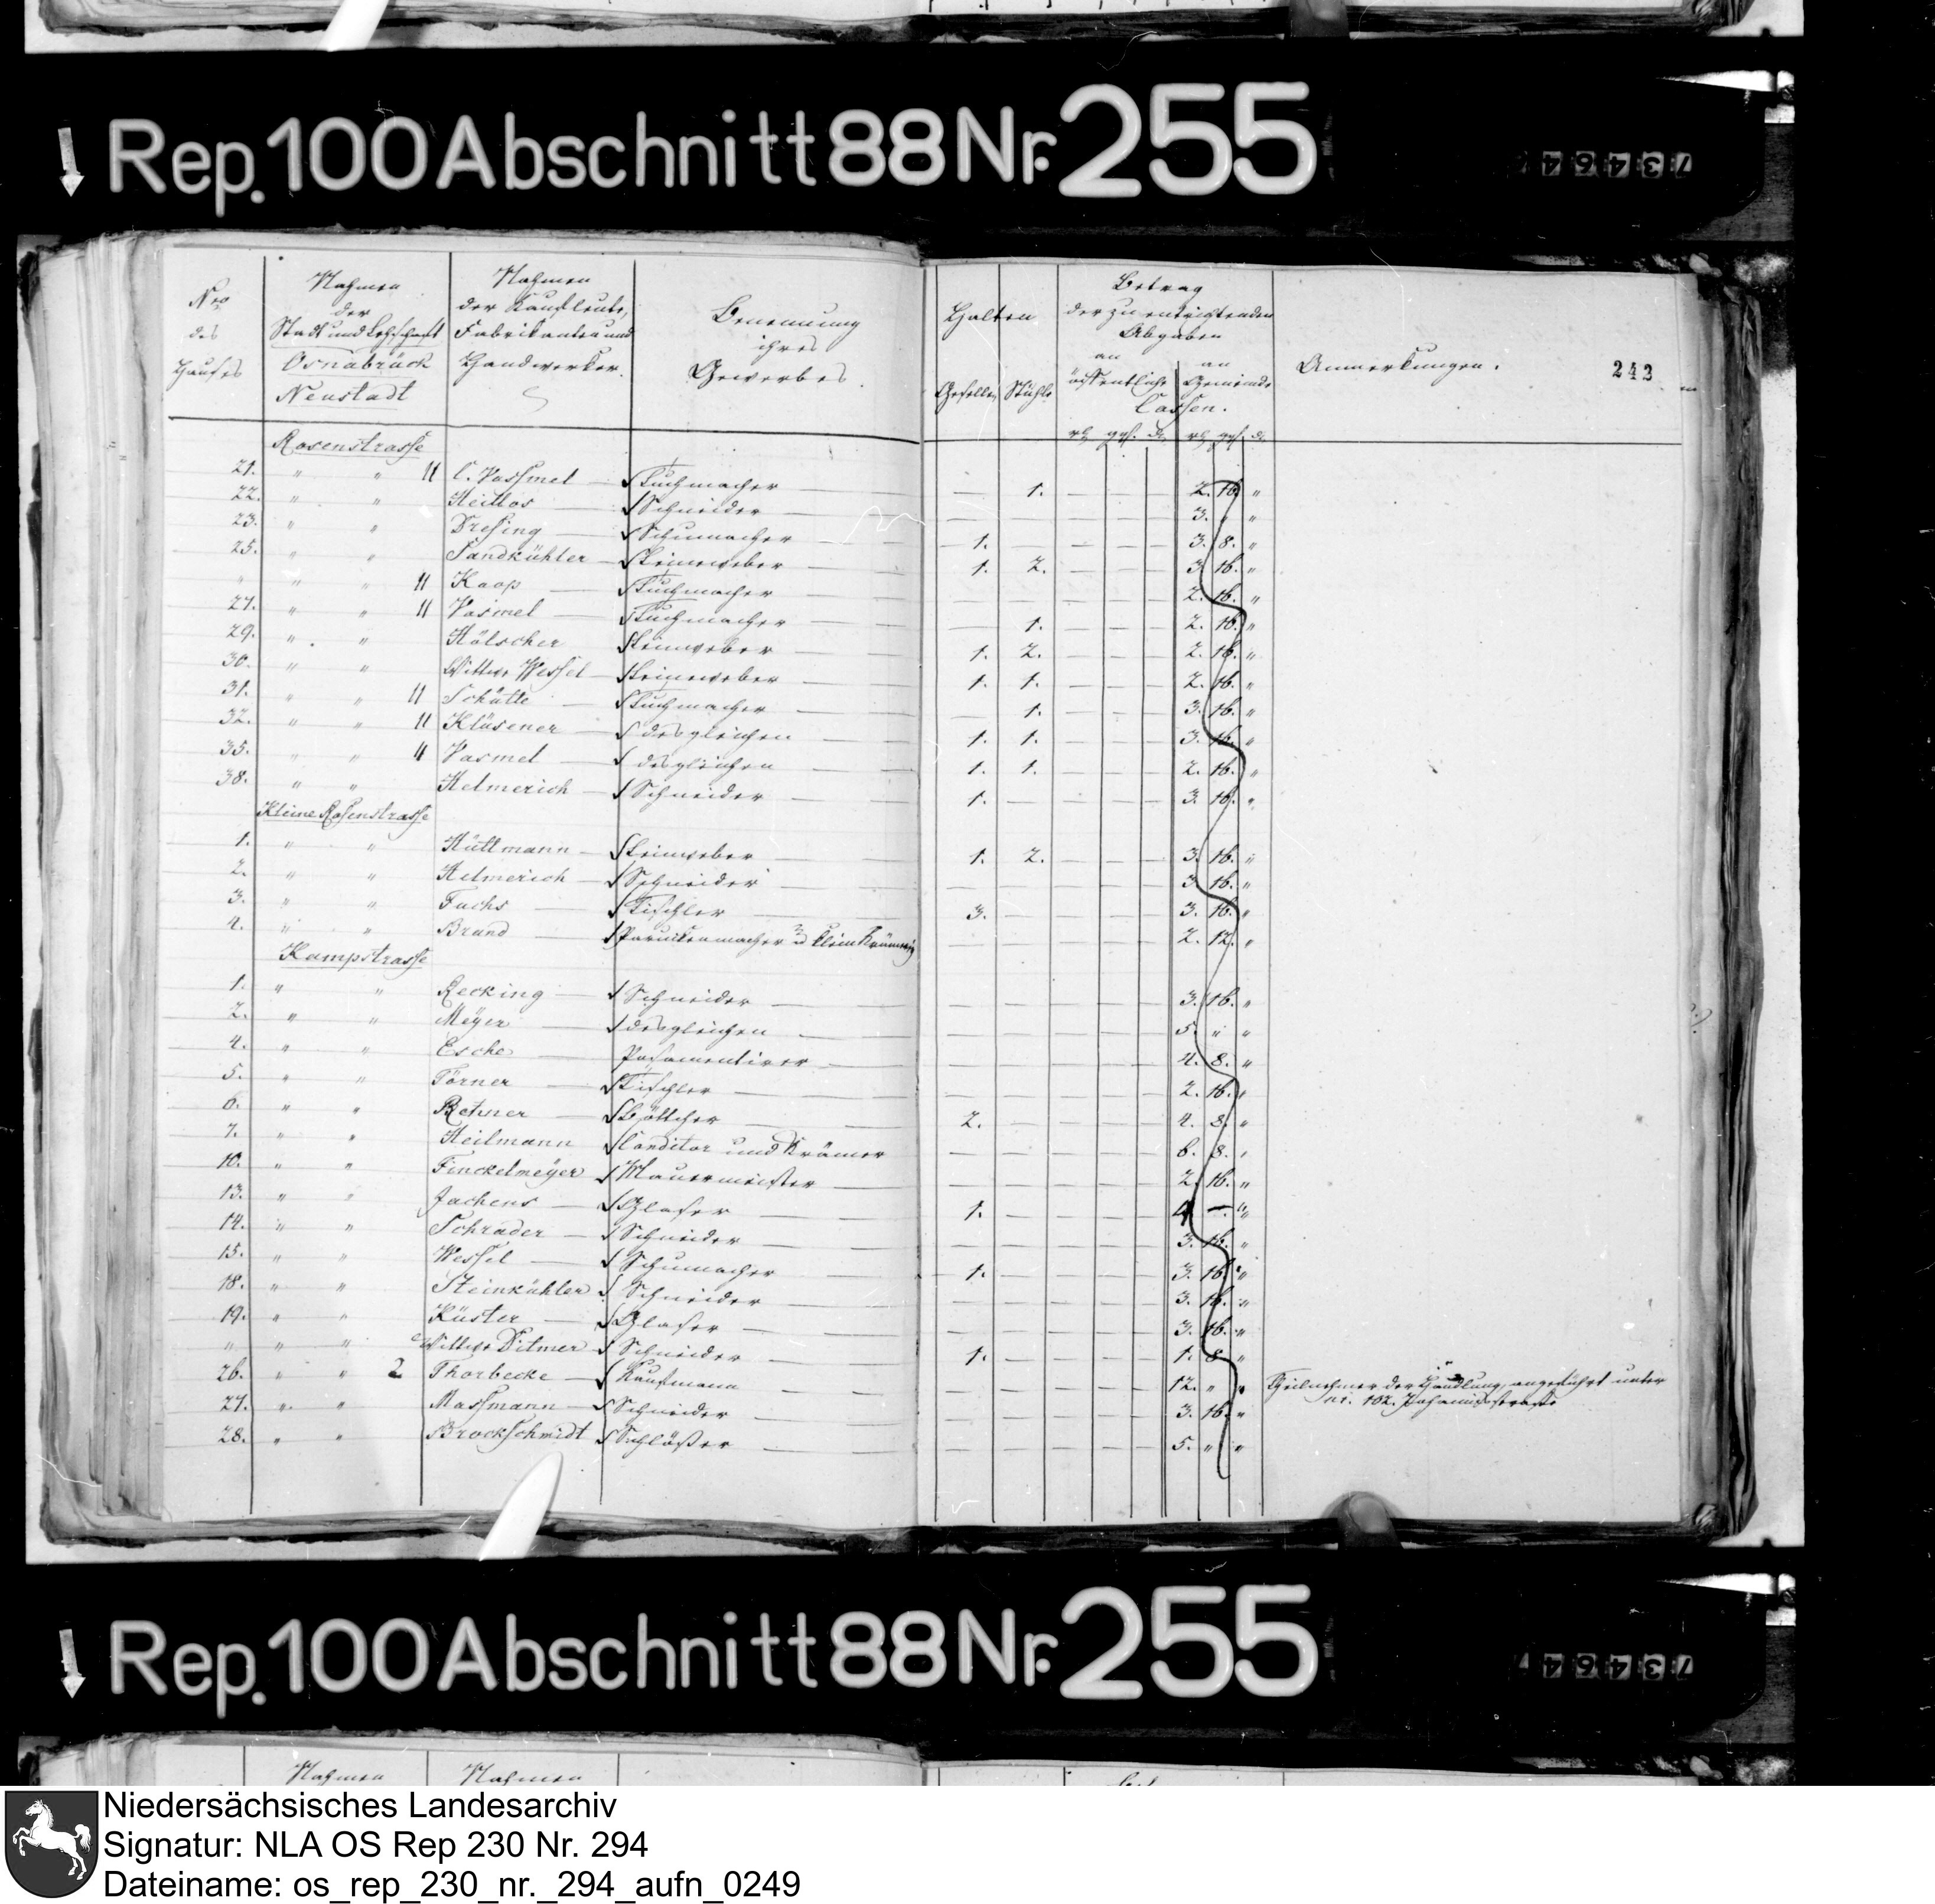 Rep. 100 Abschnitt 88 Nr. 255
73464
Nro des Hauses
Nahmen der Stadt und Leyschaft Osnabrück Neustadt
Nahmen der Kaufleute, Fabrikanten und Handwerker.
Benennung ihres Gewerbes.
Halten
Gesellen Stühle
Betrag der zu entrichtenden Abgaben
an öffentliche an Gemeinde Cassen.
Anmerkungen.
243
Rosenstrasse
21. " " C. Vassmel Tuchmacher — 1. — — — 2. 16. "
22. " " Heitlos Schneider — — — — — 3. " "
23. " " Dresing Schumacher 1. — — — — 3. 8. "
25. " " Sandkühler Leineweber 1. 2. — — — 3. 16. "
" " " Kaop Tuchmacher — — — — — 2. 16. "
27. " " Vasmel Tuchmacher — 1. — — — 2. 16. "
29. " " Hölscher Leinweber 1. 2. — — — 2. 16. "
30. " " Wittwe Wessel Leineweber 1. 1. — — — 2. 16. "
31. " " Schütte Tuchmacher — 1. — — — 3. 16. "
32. " " Klüsener desgleichen 1. 1. — — — 3. 16. "
35. " " Vasmel desgleichen 1. 1. — — — 2. 16. "
38. " " Helmerich Schneider 1. — — — — 3. 16. "
Kleine Rosenstrasse
1. " " Hüttmann Leinweber 1. 2. — — — 3. 16. "
2. " " Helmerich Schneider — — — — — 3. 16. "
3. " " Fuchs Tischler 3. — — — — 3. 16. "
4. " " Brand Paruckenmacher u Klein Krämerey — — — — — 2. 12. "
Kampstrasse
1. " " Recking Schneider — — — — — 3. 16. "
2. " " Meÿer desgleichen — — — — — 5. " "
4. " " Esche Posamentirer — — — — — 4. 8. "
5. " " Törner Tischler — — — — — 2. 16. "
6. " " Rehner Böttcher 2. — — — — 4. 8. "
7. " " Heilmann Conditor und Krämer — — — — — 6. 8. "
10. " " Finckelmeÿer Mauermeister — — — — — 2. 16. "
13. " " Jachens Glaser 1. — — — — 4 — "
14. " " Schrader Schneider — — — — — 3. 16. "
15. " " Wessel Schumacher 1. — — — — 3. 16. "
18. " " Steinkühler Schneider — — — — — 3. 16. "
19. " " Küster Glaser — — — — — 3. 16. "
" " " Wittwe Ditmer Schneider 1. — — — — 1. 8. "
26. " " 2 Thorbecke Kaufmann — — — — — 12. " " Theilnehmer der Handlung, angeführt unter
nr. 102. Johannisstrasse
27. " " Massmann Schneider — — — — — 3. 16. "
28. " " Brockschmidt Schlößer — — — — — 5. " "
Rep. 100 Abschnitt 88 Nr. 255
73464
Nahmen Nahmen
Niedersächsisches Landesarchiv
Signatur: NLA OS Rep 230 Nr. 294
Dateiname: os_rep_230_nr._294_aufn_0249